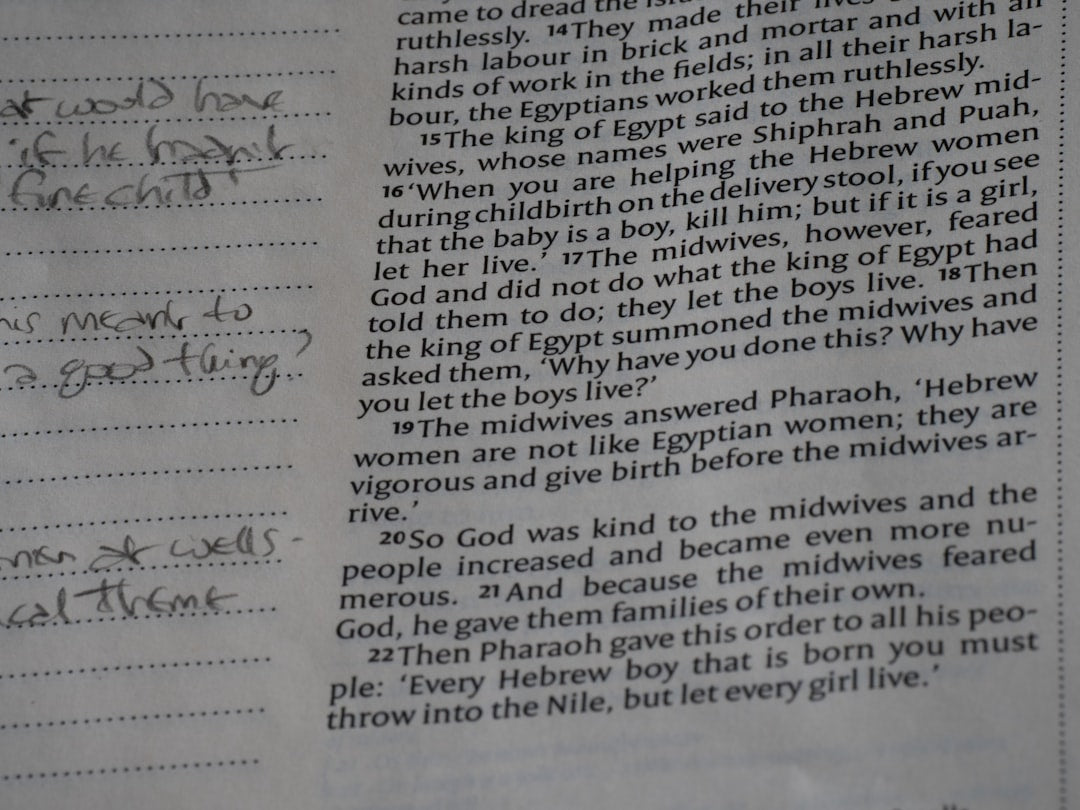 at would have
if he
fine child?
his meant to
a good thing?
at wells -
cal theme
came to dread the
ruthlessly. 14 They made their lives
harsh labour in brick and mortar and with all
kinds of work in the fields; in all their harsh la-
bour, the Egyptians worked them ruthlessly.
15 The king of Egypt said to the Hebrew mid-
wives, whose names were Shiphrah and Puah,
16 ‘When you are helping the Hebrew women
during childbirth on the delivery stool, if you see
that the baby is a boy, kill him; but if it is a girl,
let her live.’ 17 The midwives, however, feared
God and did not do what the king of Egypt had
told them to do; they let the boys live. 18 Then
the king of Egypt summoned the midwives and
asked them, ‘Why have you done this? Why have
you let the boys live?’
19 The midwives answered Pharaoh, ‘Hebrew
women are not like Egyptian women; they are
vigorous and give birth before the midwives ar-
rive.’
20 So God was kind to the midwives and the
people increased and became even more nu-
merous. 21 And because the midwives feared
God, he gave them families of their own.
22 Then Pharaoh gave this order to all his peo-
ple: ‘Every Hebrew boy that is born you must
throw into the Nile, but let every girl live.’